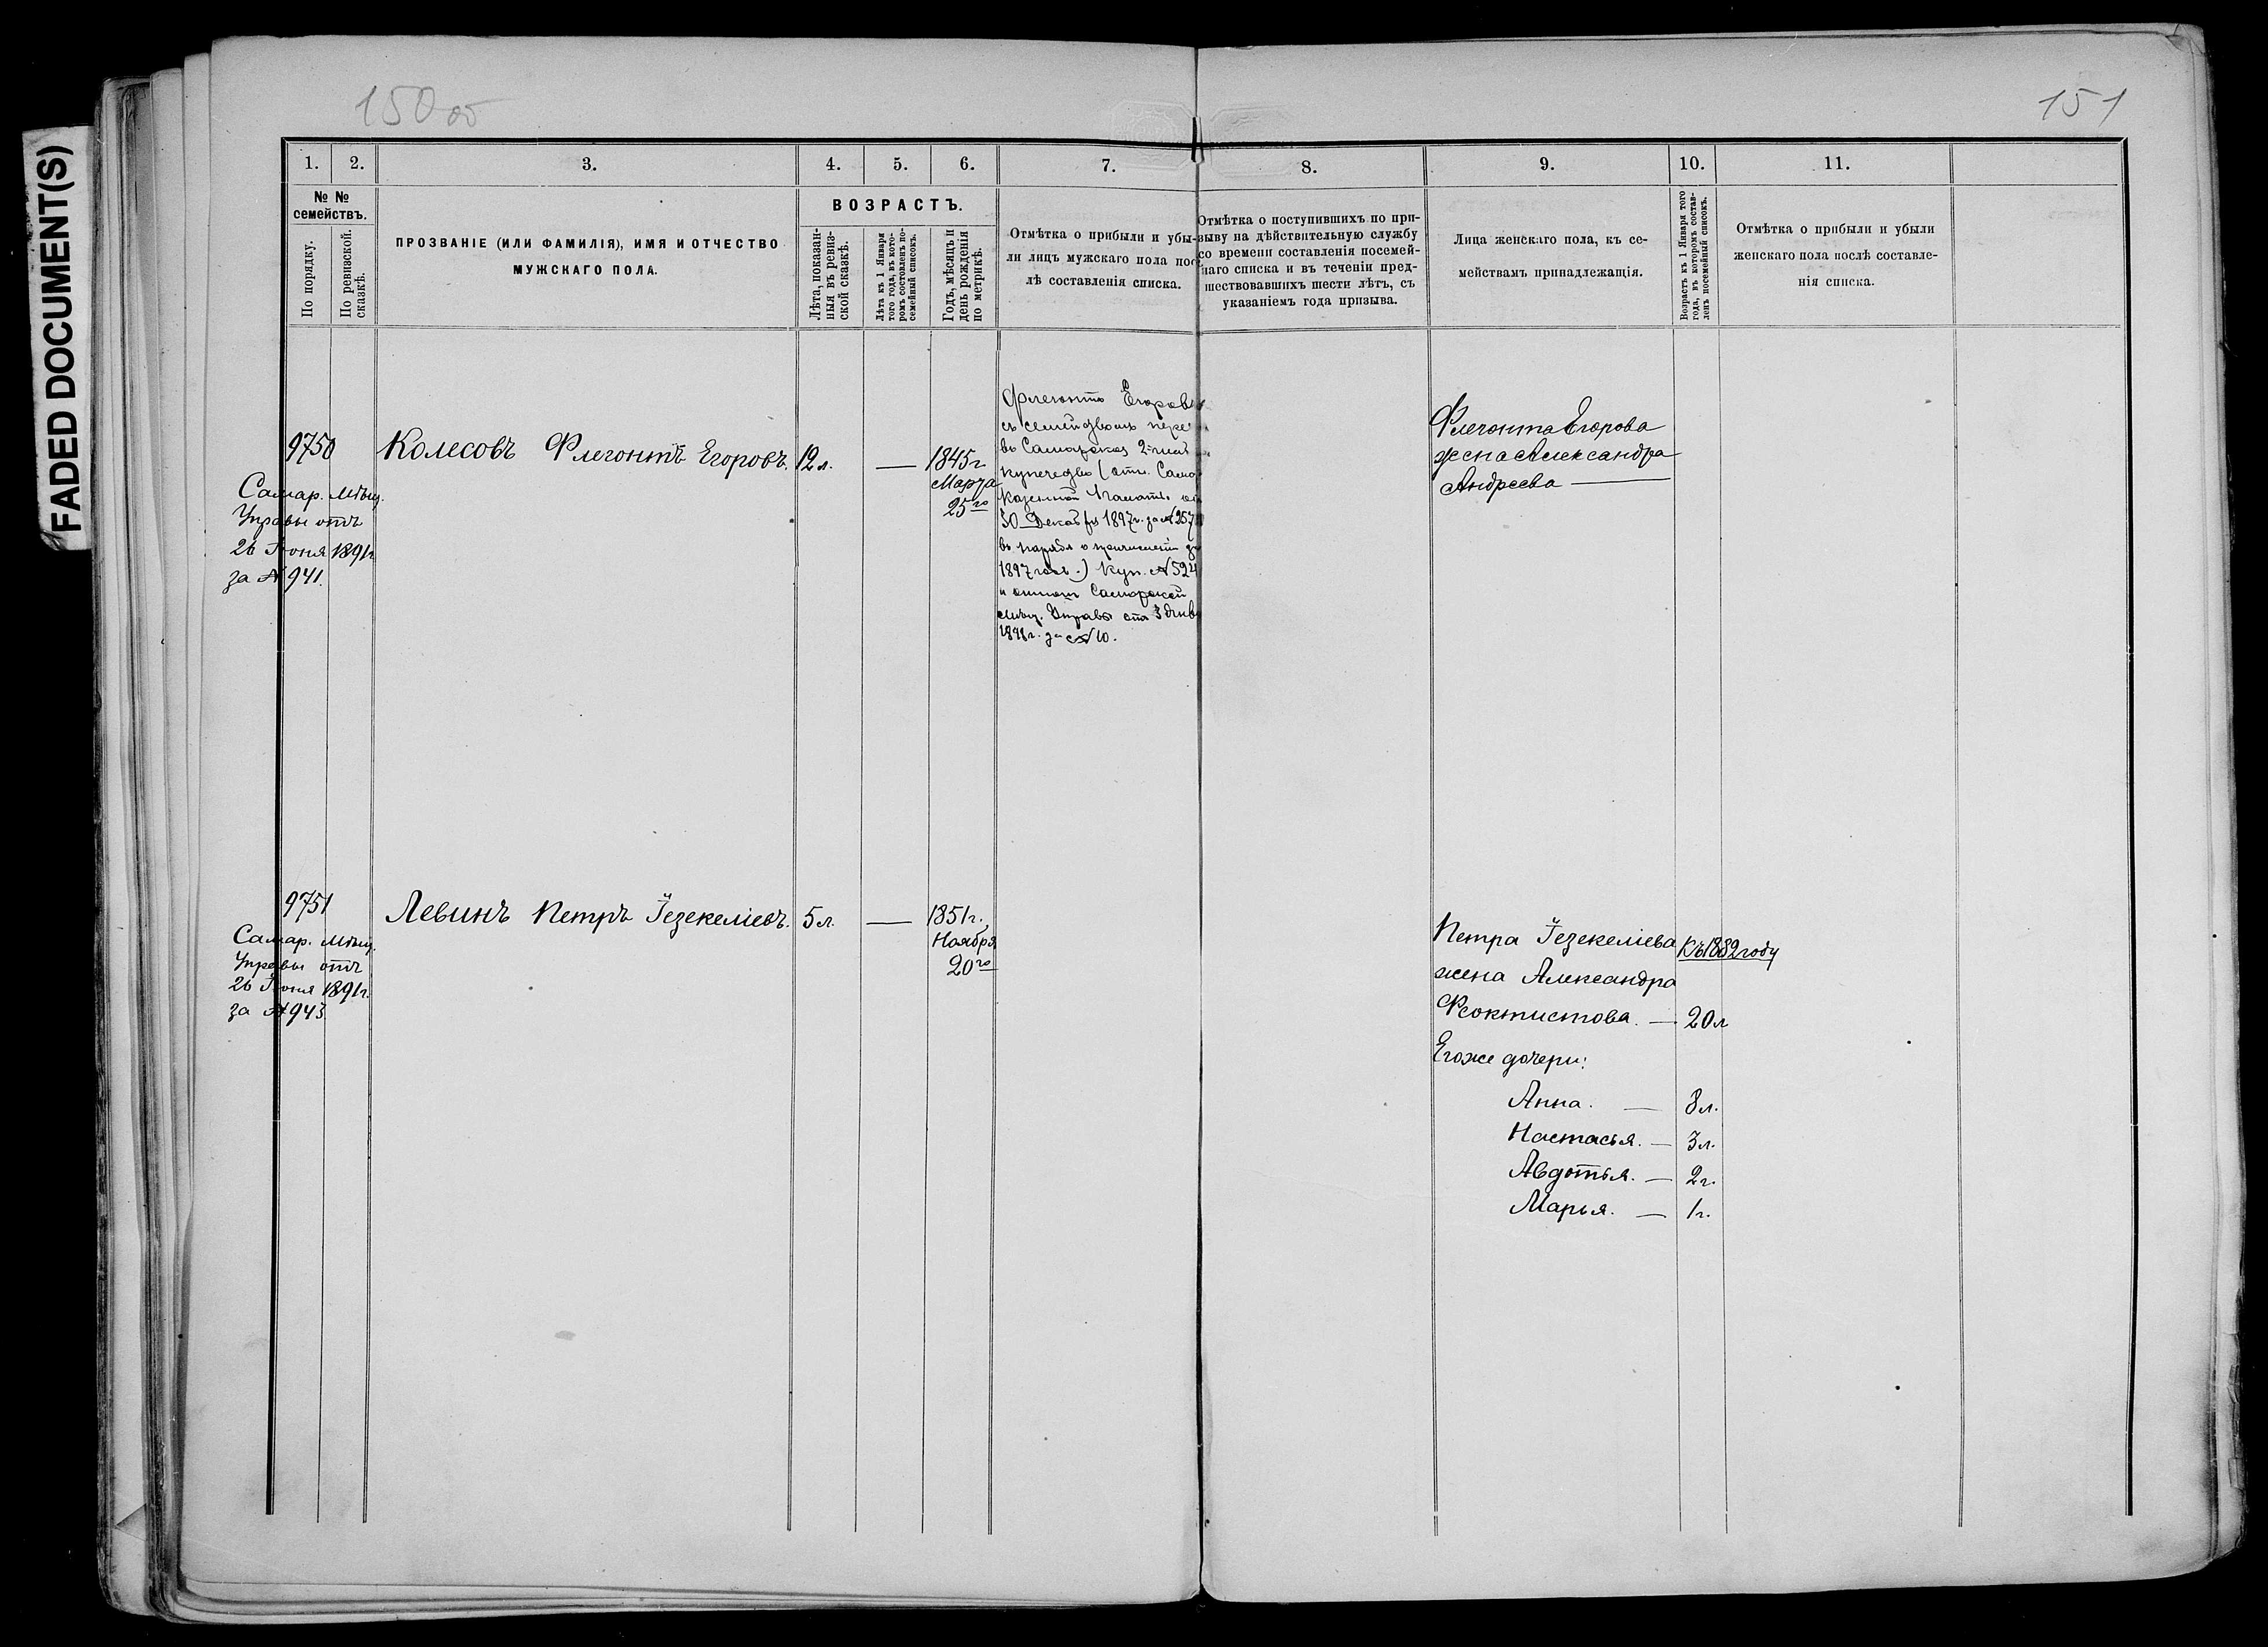 FADED DOCUMENT(S)
150 об
151
1.
2.
3.
4.
5.
6.
7.
8.
9.
10.
11.
№ №
семействъ.
По порядку.
По ревизской.
сказкѣ.
ПРОЗВАНІЕ (ИЛИ ФАМИЛІЯ), ИМЯ И ОТЧЕСТВО
МУЖСКАГО ПОЛА.
ВОЗРАСТЪ.
Лѣта, показан-
ныя въ ревиз-
ской сказкѣ.
Лѣта къ 1 Января
того года, въ кото-
ромъ составленъ по-
семейный списокъ.
Годъ, мѣсяцъ и
день рожденія
по метрикѣ.
Отмѣтка о прибыли и убы-
ли лицъ мужскаго пола пос
лѣ составленія списка.
Отмѣтка о поступившихъ по при-
зыву на дѣйствительную службу
со времени составленія посемей-
наго списка и въ теченіи пред-
шествовавшихъ шести лѣтъ, съ
указаніемъ года призыва.
Лица женскаго пола, къ се-
мействамъ принадлежащія.
Возрастъ къ 1 Января того
года, въ которомъ состав-
ленъ посемейный списокъ.
Отмѣтка о прибыли и убыли
женскаго пола послѣ составле-
нія списка.
9750
Самар. Мѣщ.
Управы отъ
26 Іюня 1891г.
за № 941.
Колесовъ Флегонтъ Егоровъ.
12 л.
—
1845г.
Марта
25го
Флегонтъ Егоровъ
съ семействомъ пере
въ Самарское 2й гильд
купечество (отн. Самар
Казенной Палаты отъ
30 Декабря 1897г. за № 257
въ нарядѣ о причисленіи
1897 года.) Куп. № 524
и отнош Самарской
Мѣщ. Управы отъ 3 Янв
1898г. за № 10.
Флегонта Егорова
жена Александра
Андреева —
9751
Самар. Мѣщ.
Управы отъ
26 Іюня 1891г.
за № 943
Левинъ Петръ Іезекеліевъ.
5 л.
—
1851г.
Ноября
20го
Петра Іезекеліева
Къ 1882 году
жена Александра
Феоктистова. — 20 л
Егоже дочери:
Анна. — 8 л.
Настасья. — 3 л.
Авдотья. — 2 г.
Марья. — 1 г.